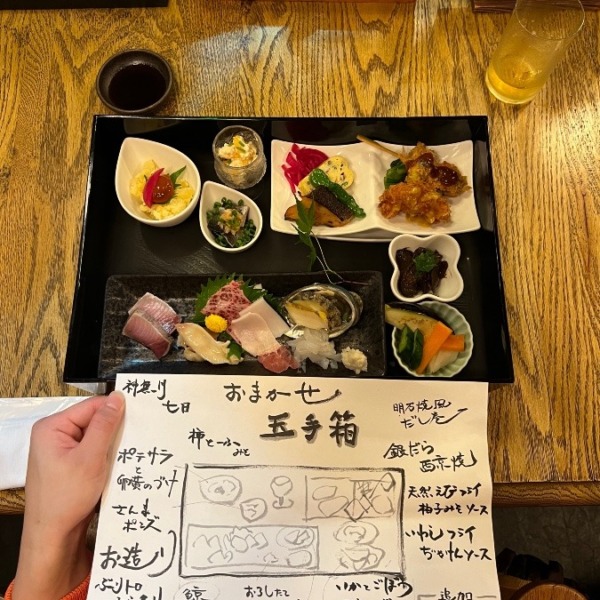 神無月
七日
おまかせ
玉手箱
明石焼風
だし巻
柿とーふ
みそ
銀だら
西京焼
ポテサラ
と
卵黄のづけ
さんま
ポンズ
天然えびフライ
柚子みそソース
いわしフライ
お造り
ぶりトロ
鯨
おろしたて
いかとごぼう
追加